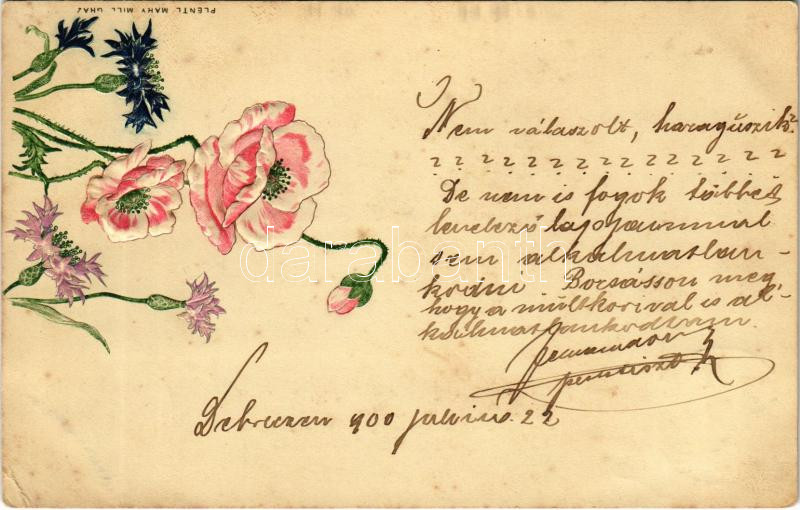 PLENTL MARY MILL GRAZ
Nem válaszolt, haragúszik?
? ? ? ? ? ? ? ? ? ? ? ? ? ? ?
De nem is fogok többé
levelező lapjaimmal
sem alkalmatlan-
kodni. Bocsásson meg,
hogy a multkorival is al-
kalmatlankodtam.
Debreczen 900 julius. 22
darabanth